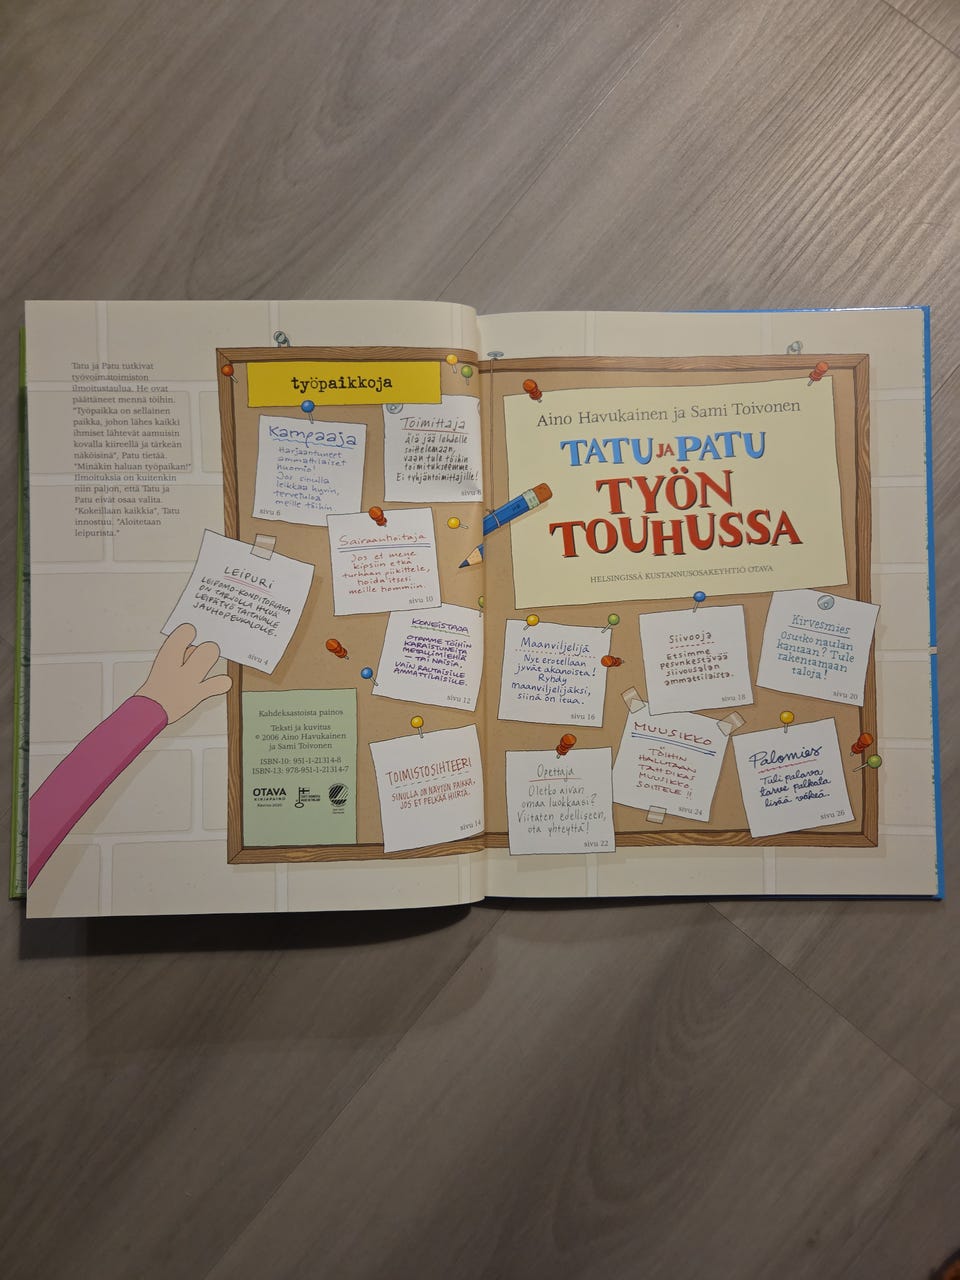 Tatu ja Patu tutkivat
työvoimatoimiston
ilmoitustaulua. He ovat
päättäneet mennä töihin.
"Työpaikka on sellainen
paikka, johon lähes kaikki
ihmiset lähtevät aamuisin
kovalla kiireellä ja tärkeän
näköisinä", Patu tietää.
"Minäkin haluan työpaikan!"
Ilmoituksia on kuitenkin
niin paljon, että Tatu ja
Patu eivät osaa valita.
"Kokeillaan kaikkia", Tatu
innostuu. "Aloitetaan
leipurista."
työpaikkoja
Kampaaja
Harjaantuneet
ammattilaiset
huomio!
Jos sinulla
leikkaa hyvin,
tervetuloa
meille töihin.
sivu 6
Toimittaja
älä jää lehdelle
soittelemaan,
vaan tule töihin
toimitukseemme.
Ei tyhjäntoimittajille!
sivu 8
LEIPURI
LEIPOMO-KONDITORIASSA
ON TARJOLLA HYVÄ
LEIPÄTYÖ TAITAVALLE
JAUHOPEUKALOLLE.
sivu 4
Sairaanhoitaja
Jos et mene
kipsiin etkä
turhaan piikittele,
hoida itsesi
meille hommiin.
sivu 10
KONEISTAJA
OTAMME TÖIHIN
KARAISTUNEITA
METALLIMIEHIÄ
- TAI NAISIA.
VAIN RAUTAISILLE
AMMATTILAISILLE.
sivu 12
Kahdeksastoista painos
Teksti ja kuvitus
© 2006 Aino Havukainen
ja Sami Toivonen
ISBN-10: 951-1-21314-8
ISBN-13: 978-951-1-21314-7
OTAVA
KIRJAPAINO
Keuruu 2020
TOIMISTOSIHTEERI
SINULLA ON NÄYTÖN PAIKKA,
JOS ET PELKÄÄ HIIRTÄ.
sivu 14
Aino Havukainen ja Sami Toivonen
TATU JA PATU
TYÖN
TOUHUSSA
HELSINGISSÄ KUSTANNUSOSAKEYHTIÖ OTAVA
Maanviljelijä
Nyt erotellaan
jyvät akanoista!
Ryhdy
maanviljelijäksi,
siinä on itua.
sivu 16
Siivooja
Etsimme
pesunkestävää
siivousalan
ammattilaista.
sivu 18
Kirvesmies
Osutko naulan
kantaan? Tule
rakentamaan
taloja!
sivu 20
Opettaja
Oletko aivan
omaa luokkaasi?
Viitaten edelliseen,
ota yhteyttä!
sivu 22
MUUSIKKO
TÖIHIN
HALUTAAN
TAHDIKAS
MUUSIKKO.
SOITTELE!!
sivu 24
Palomies
Tuli palava
tarve palkata
lisää väkeä.
sivu 26